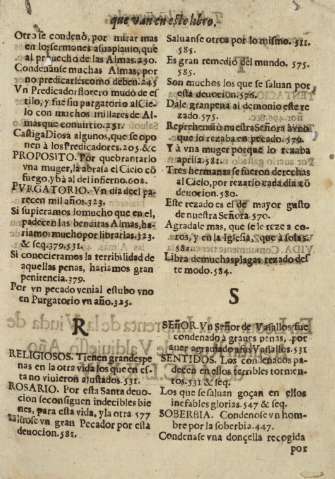 que van en este libro,
Otro se condenò, por mirar mas
en los sermones a su aplauso, que
al prouecho de las Almas. 230.
Condenanse muchas Almas, por
no predicarles como deben. 245
Vn Predicador florero mudò de es-
tilo, y fue sin purgatorio al Cie-
lo con muchos millares de Al-
mas que conuirtio. 251.
Castiga Dios a algunos, que se opo-
nen à los Predicadores. 205. & c
PROPOSITO. Por quebrantarlo
vna muger, la abraia el Cielo cō
fuego, y baxò al de infierno. 602.
PVRGATORIO. Vn dia del pa-
recen mil años. 323.
Si supieramos lo mucho que en el,
padecen las benditas Almas, ha-
riamos mucho por librarlas. 323.
& seq. 379. 531.
Si conocieramos la terribilidad de
aquellas penas, hariamos gran
penitencia. 379.
Por vn pecado venial estubo vno
en Purgatorio vn año. 325.
R
RELIGIOSOS. Tienen grandes pe-
nas en la otra vida los que en es-
ta no viuieron ajustados. 531.
ROSARIO. Por esta Santa deuo-
cion se consiguen indecibles bie
nes, para esta vida, y la otra 577
vn gran Pecador por esta
deuocion. 582.
Saluanse otros por lo mismo. 511.
585.
Es gran remedio del mundo. 575.
585.
Son muchos los que se saluan por
esta deuocion. 576.
Dale gran pena al demonio este re
zado. 575.
Reprehendio nuestra Señora à vno
que lo rezaba en pecado. 579.
Y à vna muger porque lo rezaba
aprisa. 581.
Tres hermanas se fueron derechas
al Cielo, por rezarlo cada dia cō
deuocion. 580.
Este rezado es el de mayor gusto
de nuestra Señora. 570.
Agradale mas, que se le reze a co-
ros, y en la Iglesia, que a solas.
582.
Libra de muchas plagas rezado des-
te modo. 584.
S
SEÑOR. Vn Señor de Vasallos fue
condenado à graues penas, por
auer agrauado à sus Vasallos. 531
SENTIDOS. Los condenados pa-
decen en ellos terribles tormen-
tos. 531. & seq.
Los que se saluan goçan en ellos
inefables glorias. 547. & seq.
SOBERBIA. Condenose vn hom-
bre por la soberbia. 447.
Condenase vna donçella recogida
por